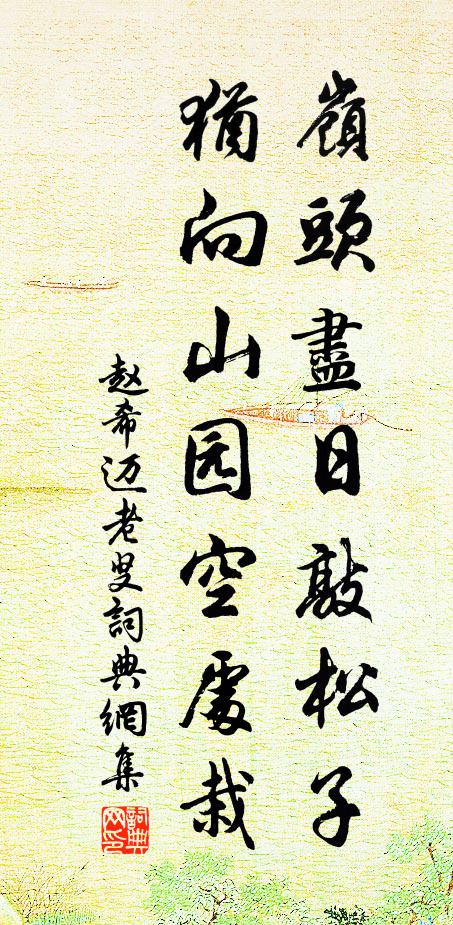 嶺頭盡日敲松子
猶向山园空處栽
赵希迈老叟詞典網集
詞典网印